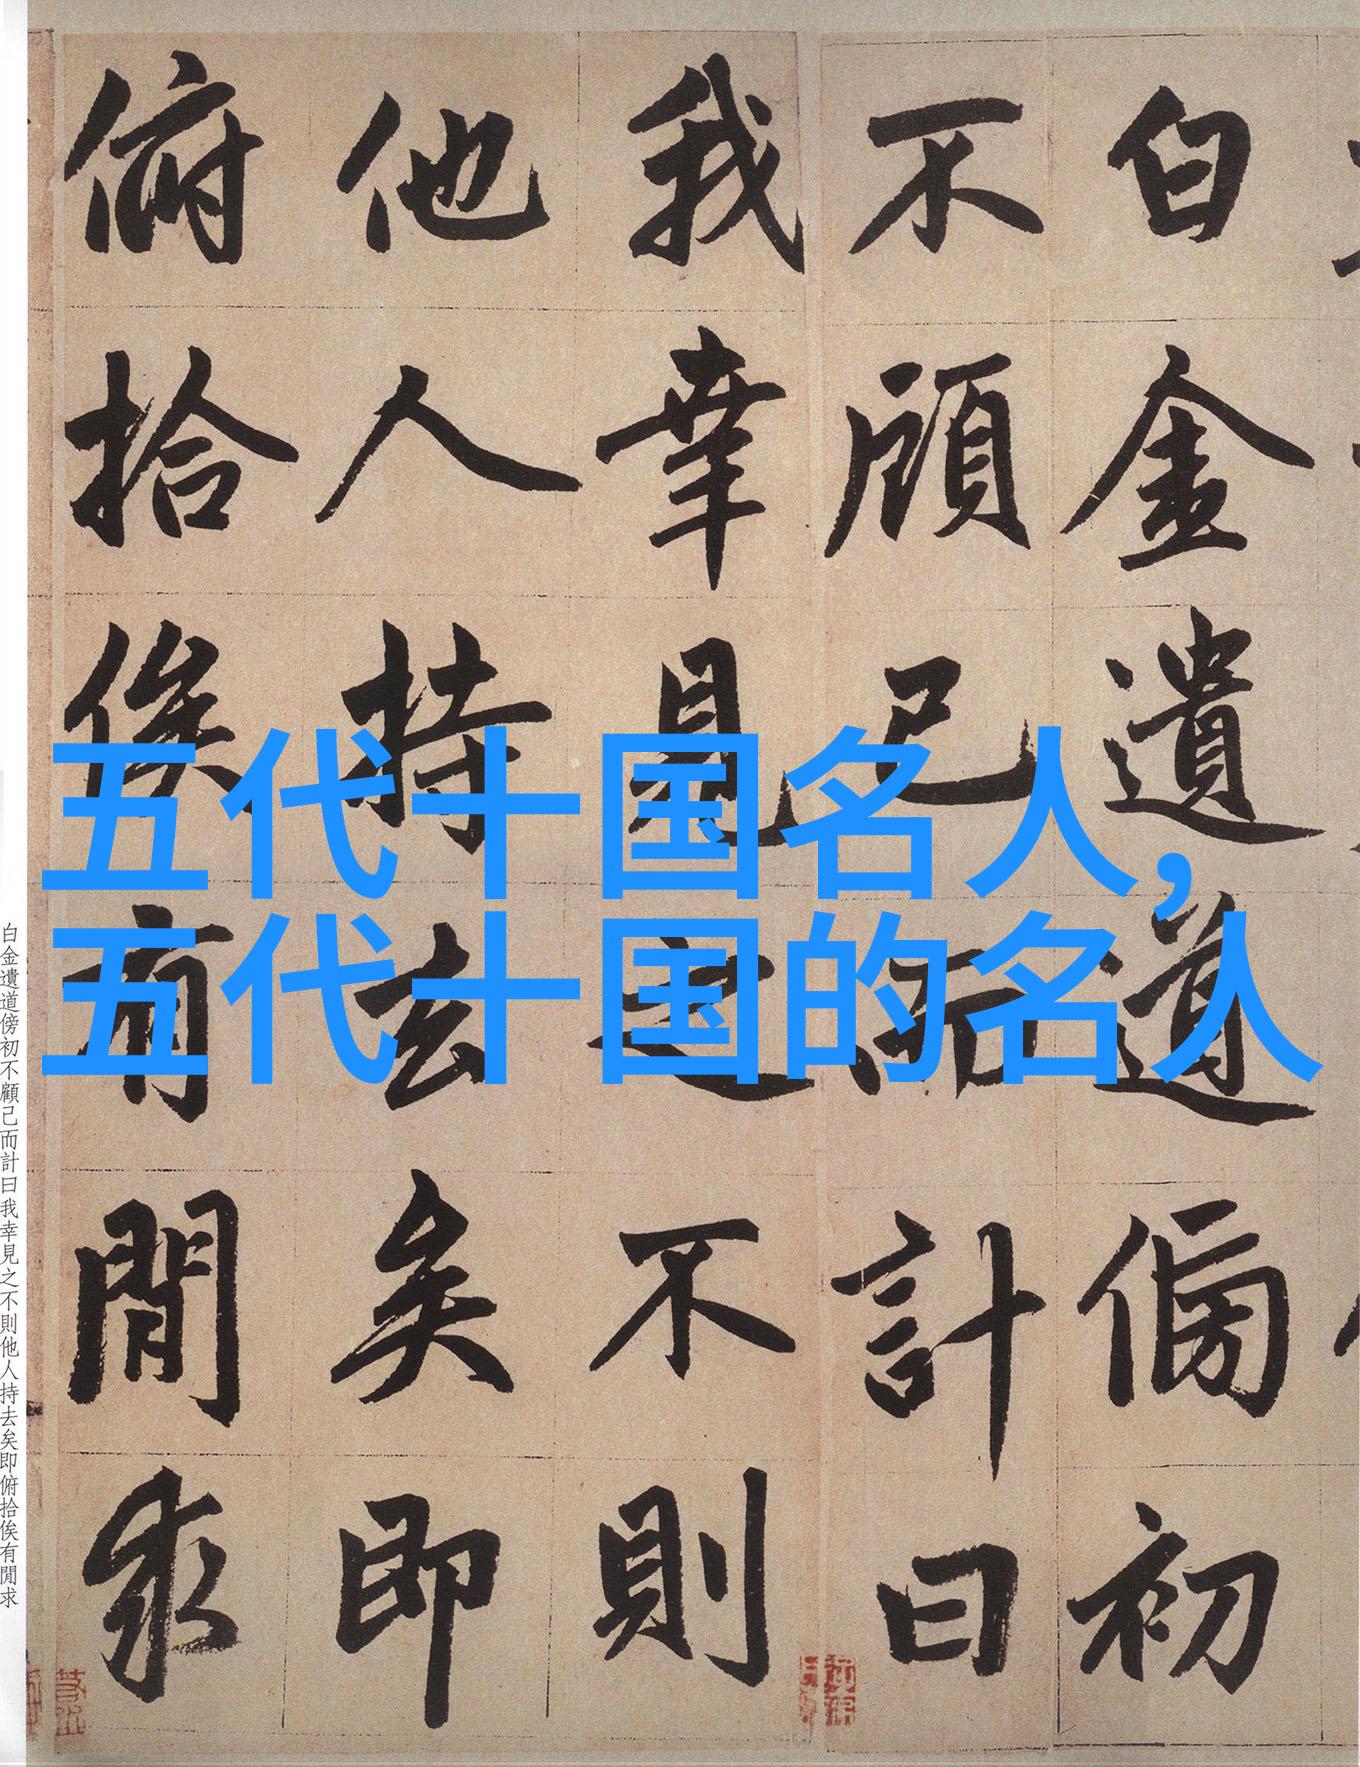 五代十国名人,
五代十国的名人
白金遺道傍初
不顧己而計曰
我幸見之不則
他人持去矣即
俯拾俟有閒求
白金遺道傍初不顧己而計曰我幸見之不則他人持去矣即俯拾俟有閒求